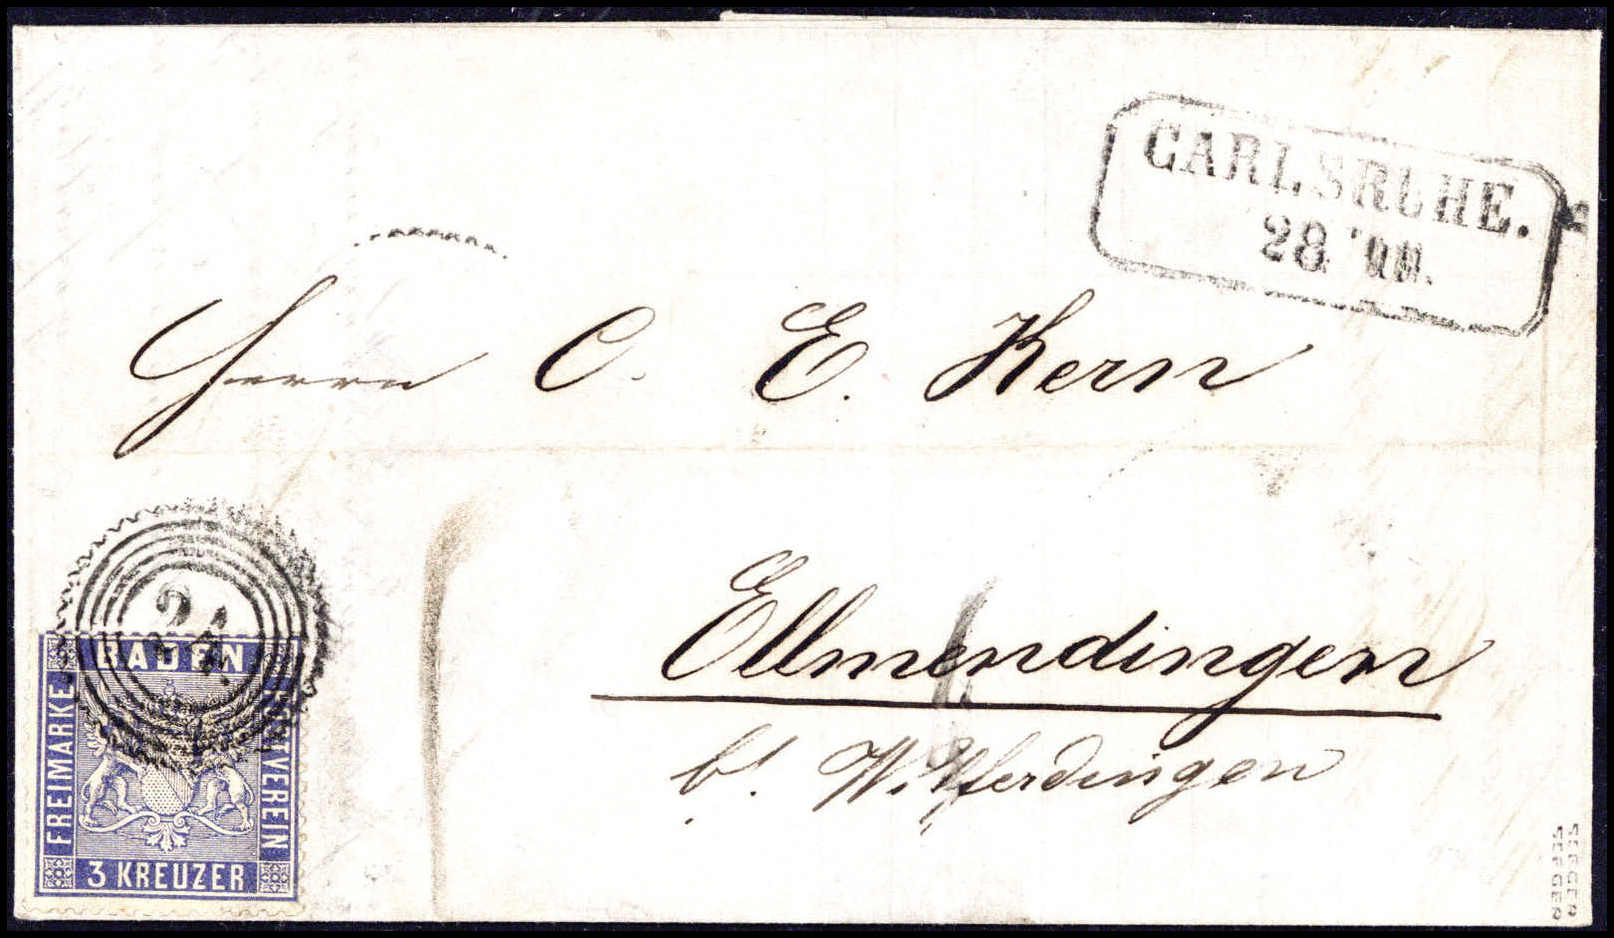 CARLSRUHE.
28
Herrn C. E. Kern
Ellmendingen
b/ Wilferdingen
24
BADEN
FREIMARKE
POSTVEREIN
3 KREUZER
SEEGER
SEEGER